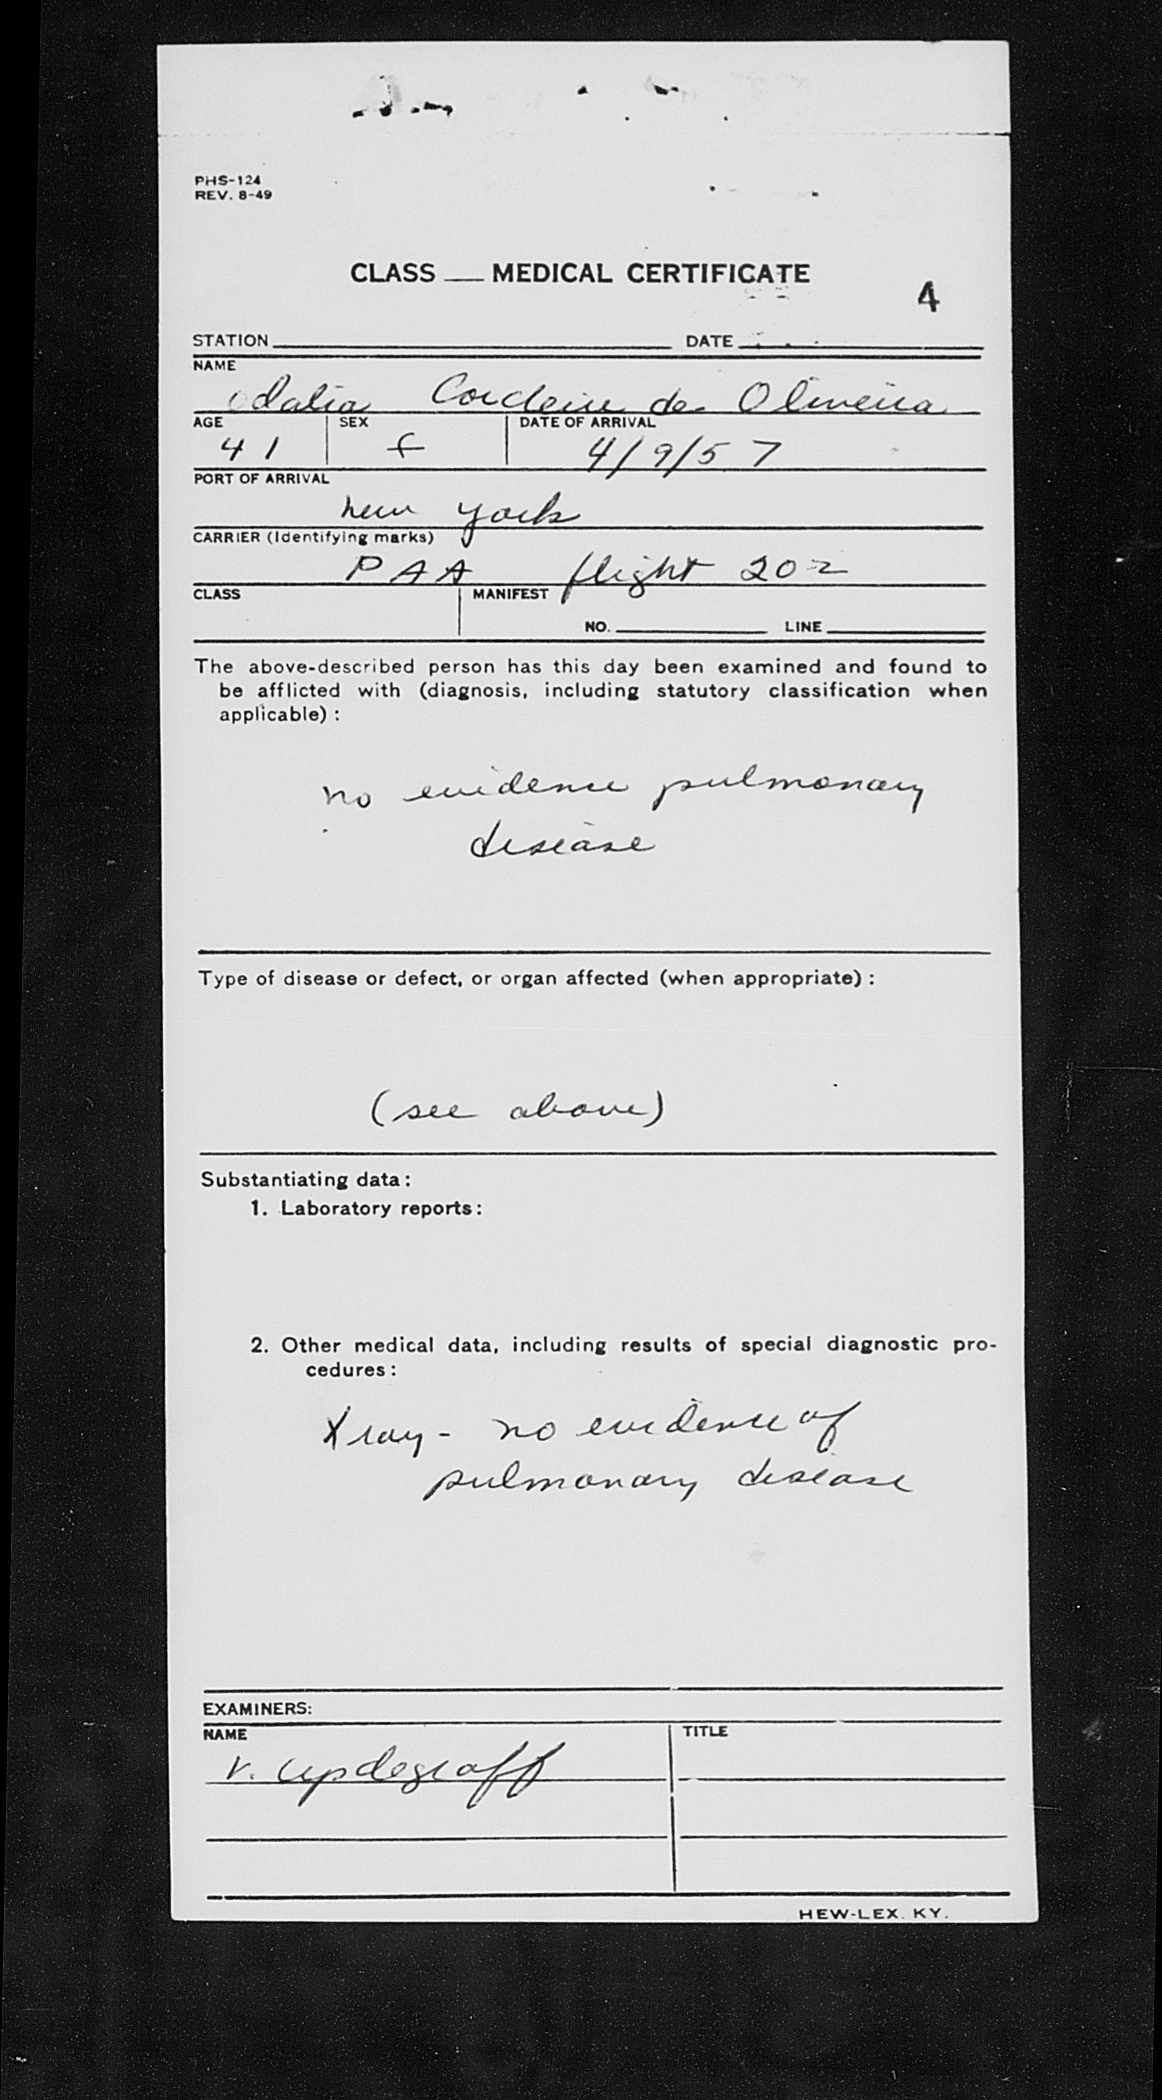 PHS-124
REV. 8-49
CLASS ___ MEDICAL CERTIFICATE
4
STATION DATE
NAME
Odalia Cordeiro de Oliveira
AGE SEX DATE OF ARRIVAL
41 f 4/9/57
PORT OF ARRIVAL
new york
CARRIER (Identifying marks)
PAA flight 202
CLASS MANIFEST
NO. LINE
The above-described person has this day been examined and found to
be afflicted with (diagnosis, including statutory classification when
applicable):
no evidence pulmonary
disease
Type of disease or defect, or organ affected (when appropriate):
(see above)
Substantiating data:
1. Laboratory reports:
2. Other medical data, including results of special diagnostic pro-
cedures:
Xray - no evidence of
pulmonary disease
EXAMINERS:
NAME TITLE
V. Updegraff
HEW-LEX. KY.